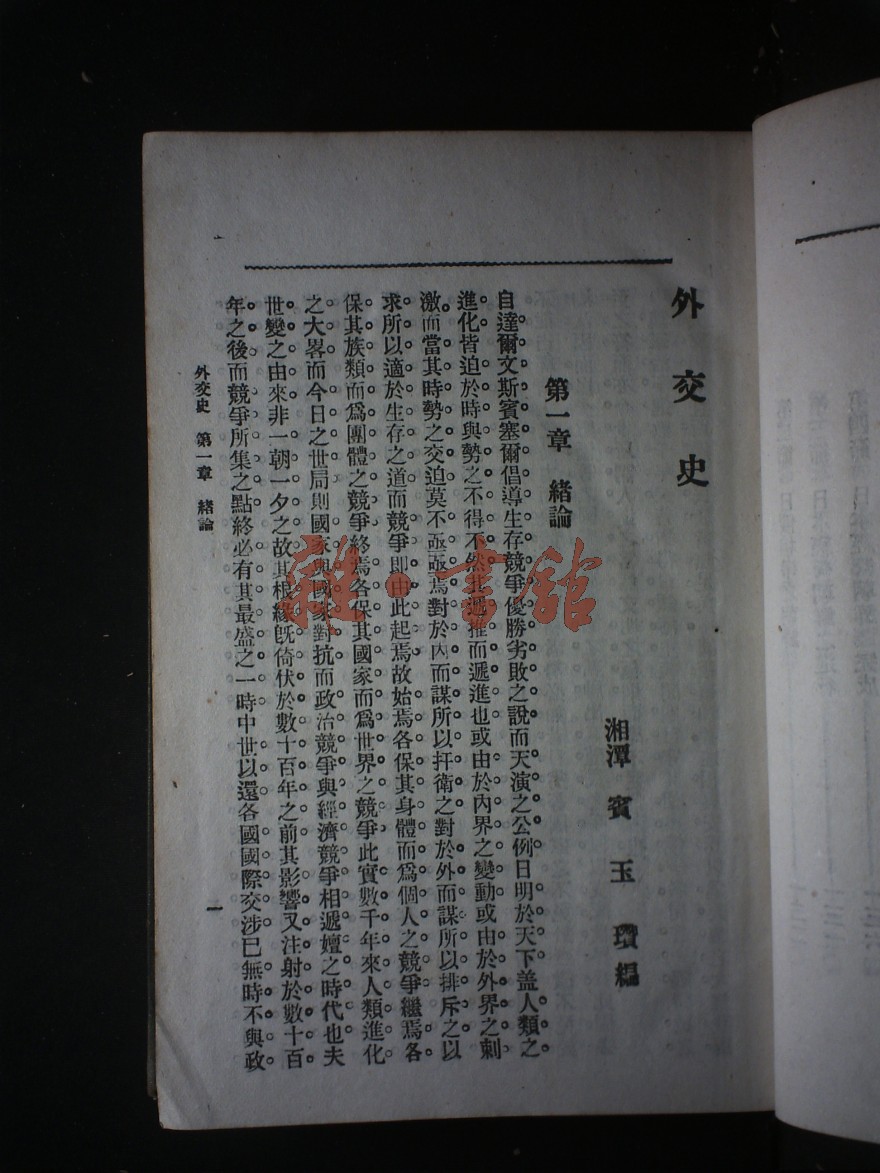 外交史
湘潭 賓玉瓚編
第一章 緒論
自達爾文斯賓塞爾倡導生存競爭優勝劣敗之說而天演之公例日明於天下盖人類之
進化皆迫於時與勢之不得不然其遞推而遞進也或由於內界之變動或由於外界之刺
激而當其時勢之交迫莫不亟亟焉對於內而謀所以扞衛之對於外而謀所以排斥之以
求所以適於生存之道而競爭即由此起焉故始焉各保其身體而爲個人之競爭繼焉各
保其族類而爲團體之競爭終焉各保其國家而爲世界之競爭此實數千年來人類進化
之大畧而今日之世局則國家與國家對抗而政治競爭與經濟競爭相遞嬗之時代也夫
世變之由來非一朝一夕之故其根緣既倚伏於數十百年之前其影響又注射於數十百
年之後而競爭所集之點終必有其最盛之一時中世以還各國國際交涉已無時不與政
外交史 第一章 緒論
一
雜·書館